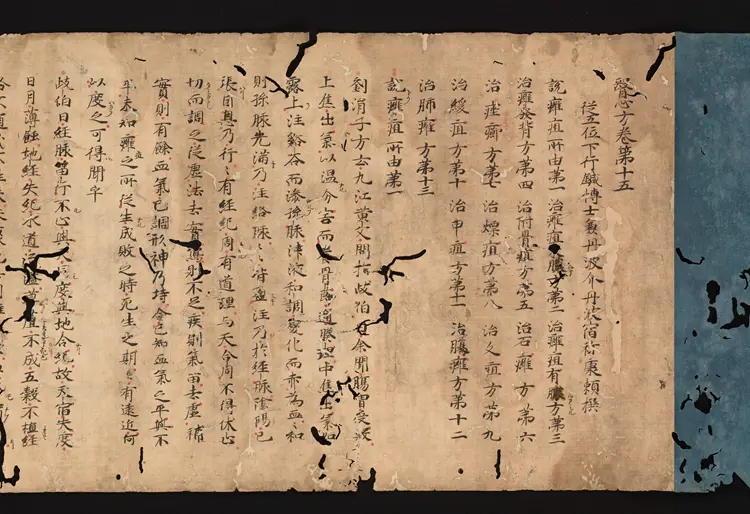 醫心方卷第十五
從五位下行鍼博士兼丹波介丹波宿祢康頼撰
說癰疽所由第一 治癰疽 方第二 治癰疽有膿方第三
治癰發背方第四 治附骨疽方第五 治石癰方第六
治痤癤方第七 治熛疽方第八 治久疽方第九
治緩疽方第十 治甲疽方第十一 治腸癰方第十二
治肺癰方第十三
說癰疽所由第一
劉涓子方云九江黃父問於歧伯曰余聞腸胃受穀
上焦出氣以温分宍而養骨節通腠理中焦出氣如
露上注谿谷而滲孫脉津液和調變化而赤為血和
則孫脉先滿乃注絡脉 皆盈注乃於經脉陰陽已
張因息乃行 有經紀周有道理与天合同不得休止
切而調之從虛法去實 則不足疾則氣 去虛補
實則有餘血氣已調形神乃持余已知血氣之平與不
平未知癰之所從生成敗之時死生之期 有遠近何
以度之可得聞乎
歧伯曰經脉 行不止與天 度與地合紀故天宿失度
日月薄蝕地經失紀水道 不成五穀不植經